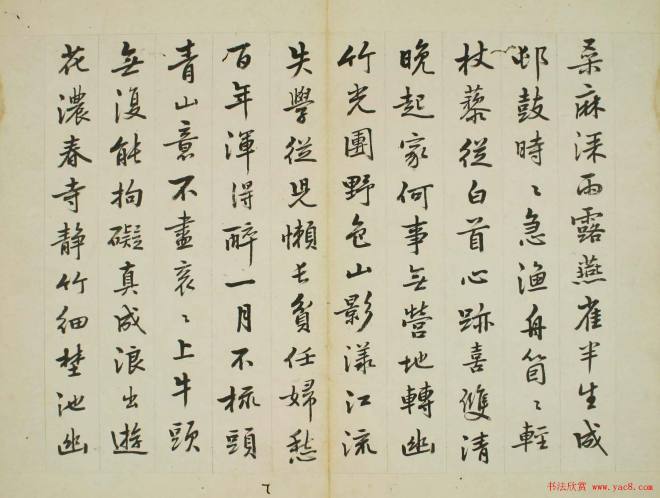 桑麻深雨露燕雀半生成
邨鼓時〻急漁舟箇〻輕
杖藜從白首心跡喜雙清
晚起家何事無營地轉幽
竹光團野色山影漾江流
失學從兒懶長貧任婦愁
百年渾得醉一月不梳頭
青山意不盡衮〻上牛頭
無復能拘礙真成浪出遊
花濃春寺靜竹細埜池幽
书法欣赏 www.yac8.com